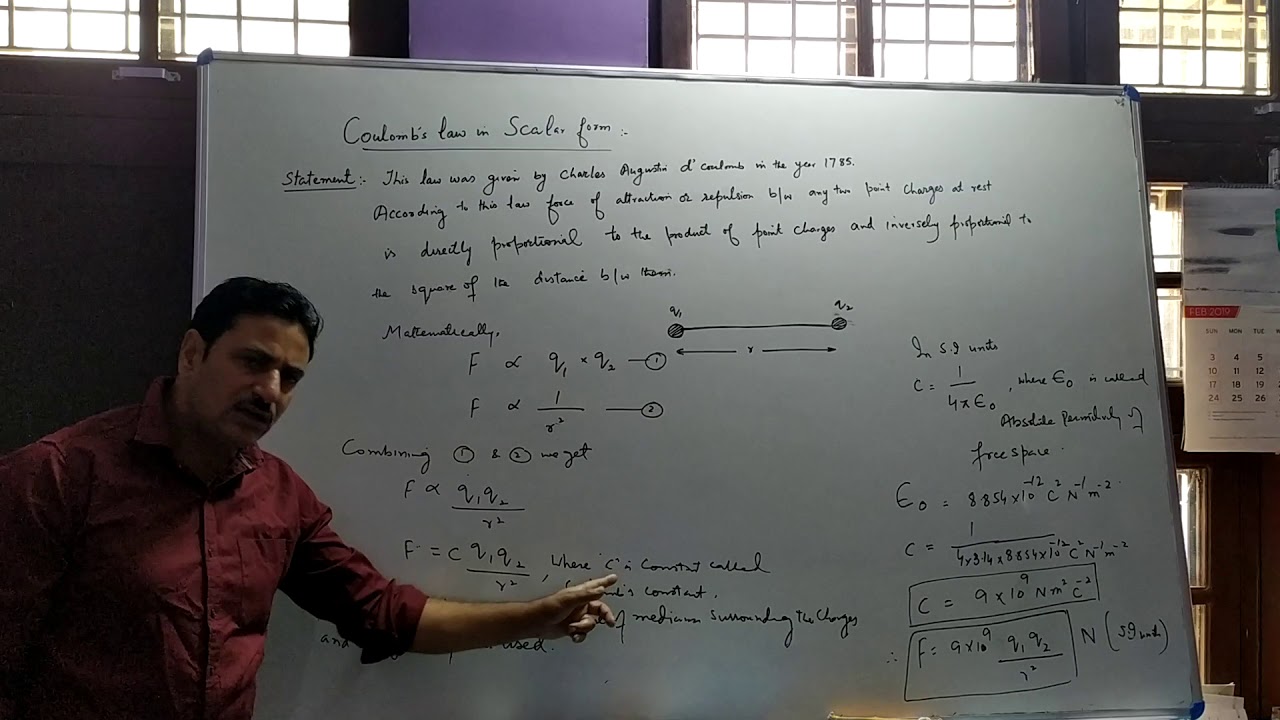 Coulomb's law in Scalar form :-
Statement :- This law was given by Charles Augustin d' Coulomb in the year 1785.
According to this law force of attraction or repulsion b/w any two point charges at rest
is directly proportional to the product of point charges and inversely proportional to
the square of the distance b/w them.
Mathematically,
q₁ q₂
r
F ∝ q₁ × q₂ — ①
F ∝ 1/r² — ②
Combining ① & ② we get
F ∝ q₁q₂/r²
F = C q₁q₂/r² , where 'C' is constant called
constant.
of medium surrounding the charges
and used.
In S.I units
C = 1/4πϵ₀ , where ϵ₀ is called
Absolute Permittivity of
free space.
ϵ₀ = 8.854×10⁻¹² C² N⁻¹ m⁻²
C = 1/4×3.14×8.854×10⁻¹² C² N⁻¹ m⁻²
C = 9×10⁹ Nm² C⁻²
∴ F = 9×10⁹ q₁q₂/r² N (SI units)
FEB 2019
SUN MON TUE
3 4 5
10 11 12
17 18 19
24 25 26